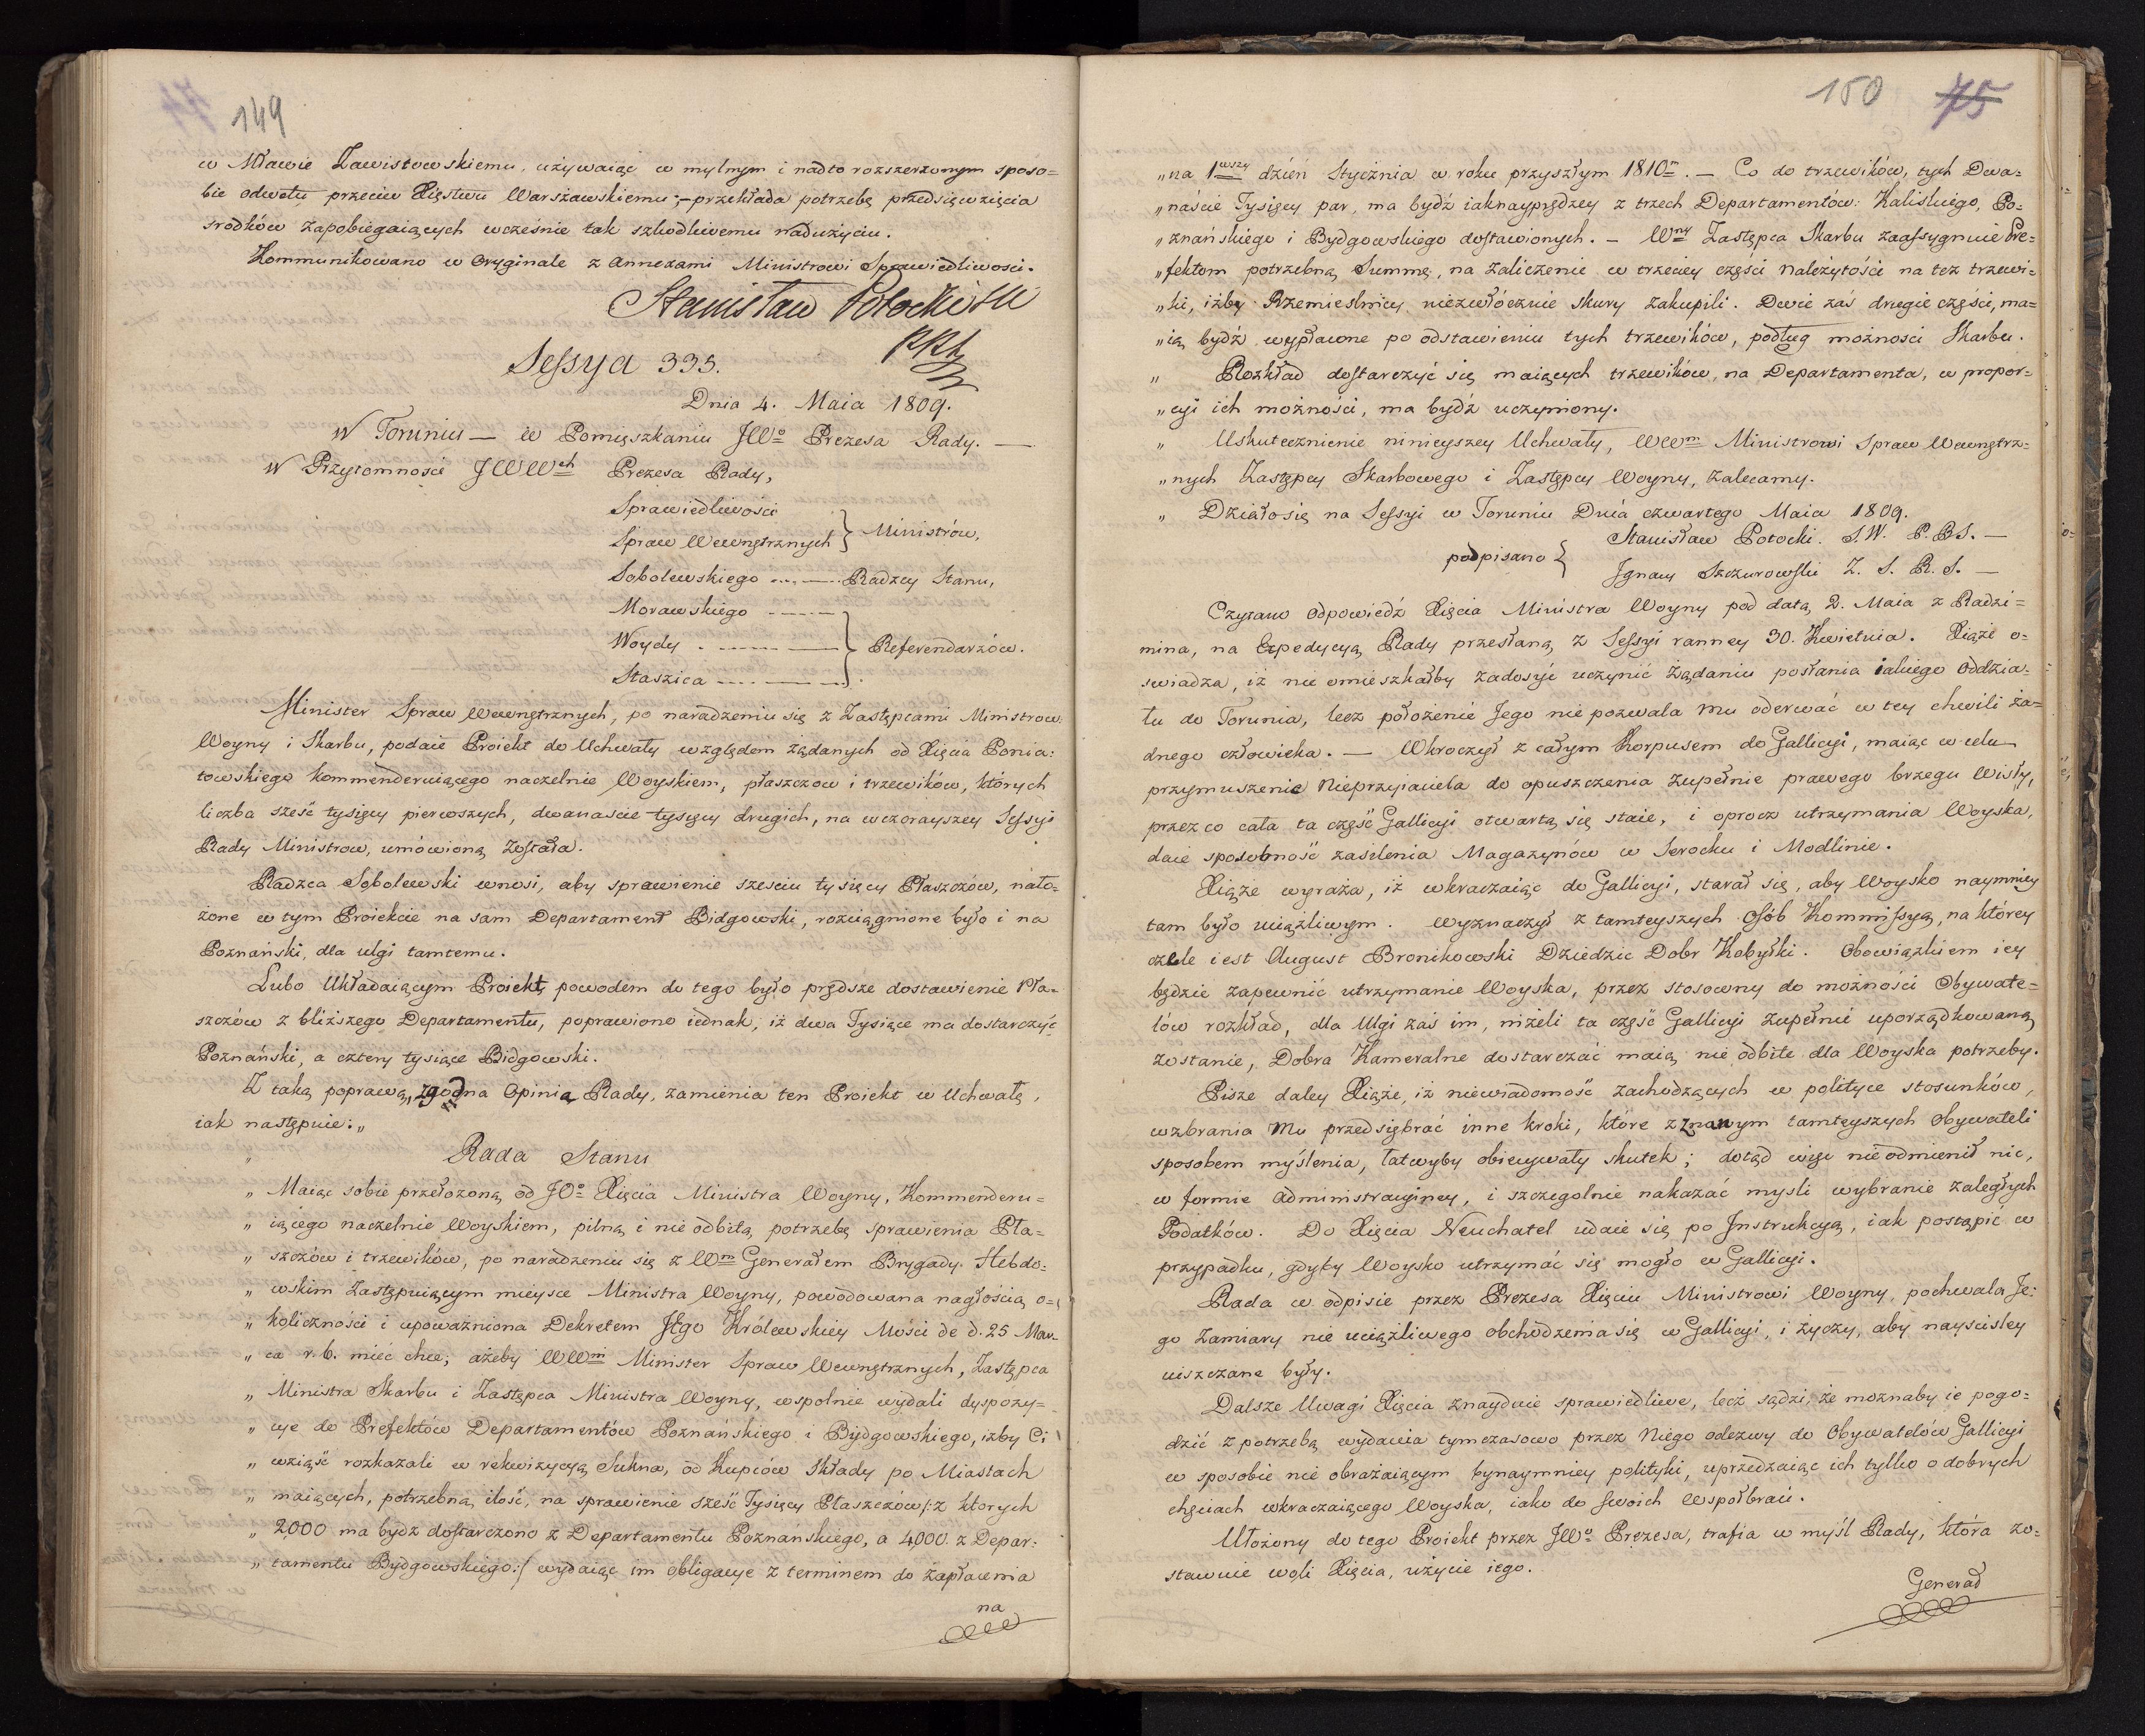 149
w Mławie Zawistowskiemu, używaiąc w mylnym i nadto rozszerzonym sposo=
bie odwetu przeciw Xięstwu Warszawskiemu; – przekłada potrzebę przedsięwzięcia
srodków zapobiegaiących wcześnie tak szkodliwemu nadużyciu.
Kommunikowano w Oryginale z Annexami Ministrowi Sprawiedliwosci.
Stanisław Potocki
Sessya 335.
Dnia 4. Maia 1809.
W Toruniu — w Pomięszkaniu JWo Prezesa Rady. —
W Przytomnosci JWWch Prezesa Rady,
Sprawiedliwości
Spraw Wewnętrznych } Ministrów,
Sobolewskiego ..... — Radzcy Stanu,
Morawskiego
Woydy } Referendarzów.
Staszica
Minister Spraw Wewnętrznych, po naradzeniu się z Zastępcami Ministrow:
Woyny i Skarbu, podaie Proiekt do Uchwały względem żądanych od Xięcia Ponia:
towskiego kommenderuiącego naczelnie Woyskiem, płaszczow i trzewików, których
liczba sześć tysięcy pierwszych, dwanascie tysięcy drugich, na wczorayszey Sessyi
Rady Ministrow, umówioną została.
Radzca Sobolewski wnosi, aby sprawienie szesciu tysięcy Płaszczów, nało=
żone w tym Proiekcie na sam Departament Bidgowski, rozciągnione było i na
Poznański, dla ulgi tamtemu.
Lubo Układaiącym Proiekt, powodem do tego było prędsze dostawienie Pła-
szczów z bliższego Departamentu, poprawiono iednak, iż dwa Tysiące ma dostarczyć
Poznański, a cztery tysiące Bidgowski.
Z taką poprawą, zgodna Opinia Rady, zamienia ten Proiekt w Uchwałę,
iak następuie: „
„ Rada Stanu
„ Maiąc sobie przełożoną od JOo Xięcia Ministra Woyny, Kommenderu=
„ iącego naczelnie Woyskiem, pilną i nie odbitą potrzebę sprawienia Pła-
„ szczów i trzewików, po naradzeniu się z Wm Generałem Brygady Hebdo=
„ wskim Zastępuiącym mieysce Ministra Woyny, powodowana nagłością o=
„ koliczności i upoważniona Dekretem JKgo Królewskiey Mości de d. 25 Mar-
„ ca r. b. miec chce; ażeby WWni Minister Spraw Wewnętrznych, Zastępca
„ Ministra Skarbu i Zastępca Ministra Woyny, wspolnie wydali dyspozy=
„ cye do Prefektów Departamentów Poznańskiego i Bydgowskiego, izby Ci
„ wziąść rozkazali w rekwizycyą Sukna, od Kupców Składy po Miastach
„ maiących, potrzebną ilość, na sprawienie sześć Tysięcy Płaszczów /: z których
„ 2000 ma bydź dostarczono z Departamentu Poznańskiego, a 4000 z Depar:
„ tamentu Bydgowskiego :/ wydaiąc im Obligacye z terminem do Zapłacenia
na
150 75
„ na 1wszy dzień Stycznia w roku przyszłym 1810m. — Co do trzewików, tych Dwa=
„ naście Tysięcy par, ma bydź iaknayprędzey z trzech Departamentów: Kaliskiego, Po=
„ znańskiego i Bydgowskiego dostawionych. — Wny Zastępca Skarbu zaassygnuie Pre=
„ fektom potrzebną Summę, na zaliczenie w trzeciey części należytości na tez trzewi=
„ ki, iżby Rzemieslnicy niezwłócznie skury zakupili. Dwie zaś drugie części, ma=
„ ią bydź wypłacone po odstawieniu tych trzewików, podług możnosci Skarbu.
„ Rozkład dostarczyć się maiących trzewików, na Departamenta, w propor=
„ cyi ich możności, ma bydź uczyniony.
„ Uskutecznienie ninieyszey Uchwały, WWm Ministrowi Spraw Wewnętrz=
„ nych Zastępcy Skarbowego i Zastępcy Woyny, zalecamy.
„ Działo się na Sessyi w Toruniu Dnia czwartego Maia 1809.
podpisano { Stanisław Potocki. S.W. P.R.S. —
Ignacy Szczurowski Z. S. R. S. —
Czytano odpowiedź Xięcia Ministra Woyny pod datą 2. Maia z Radzi=
mina, na Expedycyą Rady przesłaną z Sessyi ranney 30. Kwietnia. Xiąże o=
swiadza, iż nie omieszkałby zadosyć uczynić żądaniu posłania iakiego Oddzia=
łu do Torunia, lecz położenie Jego nie pozwala mu oderwać w tey chwili ża=
dnego człowieka. — Wkroczył z całym Korpusem do Gallicyi, maiąc w celu
przymuszenie Nieprzyiaciela do opuszczenia zupełnie prawego brzegu Wisły,
przez co cała ta część Gallicyi otwartą się staie, i oprocz utrzymania Woyska,
daie sposobność zasilenia Magazynów w Serocku i Modlinie.
Xiąże wyraża, iż wkraczaiąc do Gallicyi, starał się, aby Woysko naymniey
tam było uciążliwym. Wyznaczył z tamteyszych Osób Kommissyą, na którey
czele iest August Bronikowski Dziedzic Dobr Kobyłki. Obowiązkiem iey
będzie zapewnić utrzymanie Woyska, przez stosowny do możności Obywate=
lów rozkład, dla Ulgi zaś im, niżeli ta część Gallicyi zupełnie uporządkowaną
zostanie, Dobra Kameralne dostarczać maią nie odbite dla Woyska potrzeby.
Pisze daley Xiąże, iż niewiadomość zachodzących w polityce stosunków,
wzbrania Mu przedsiębrać inne kroki, które z znanym tamteyszych Obywateli
sposobem myślenia, łatwyby obiecywały skutek; dotąd więc nie odmienił nic,
w formie Administracyiney, i szczegolnie nakazać mysli wybranie zaległych
Podatków. Do Xięcia Neuchatel udaie się po Instrukcyą, iak postąpić w
przypadku, gdyby Woysko utrzymać się mogło w Gallicyi.
Rada w odpisie przez Prezesa Xięciu Ministrowi Woyny, pochwala Je:
go Zamiary nie uciążliwego obchodzenia się w Gallicyi, i życzy, aby nayscisley
uiszczane były.
Dalsze Uwagi Xięcia znayduie sprawiedliwe, lecz sądzi, że moznaby ie pogo=
dzić z potrzebą wydania tymczasowo przez Niego odezwy do Obywatelów Gallicyi
w sposobie nie obrażaiącym bynaymniey polityki, uprzedzaiąc ich tylko o dobrych
chęciach wkraczaiącego Woyska, iako do Swoich Wspołbraci.
Ułożony do tego Proiekt przez JWo Prezesa, trafia w myśl Rady, która zo=
stawuie woli Xięcia, użycie iego.
Generał